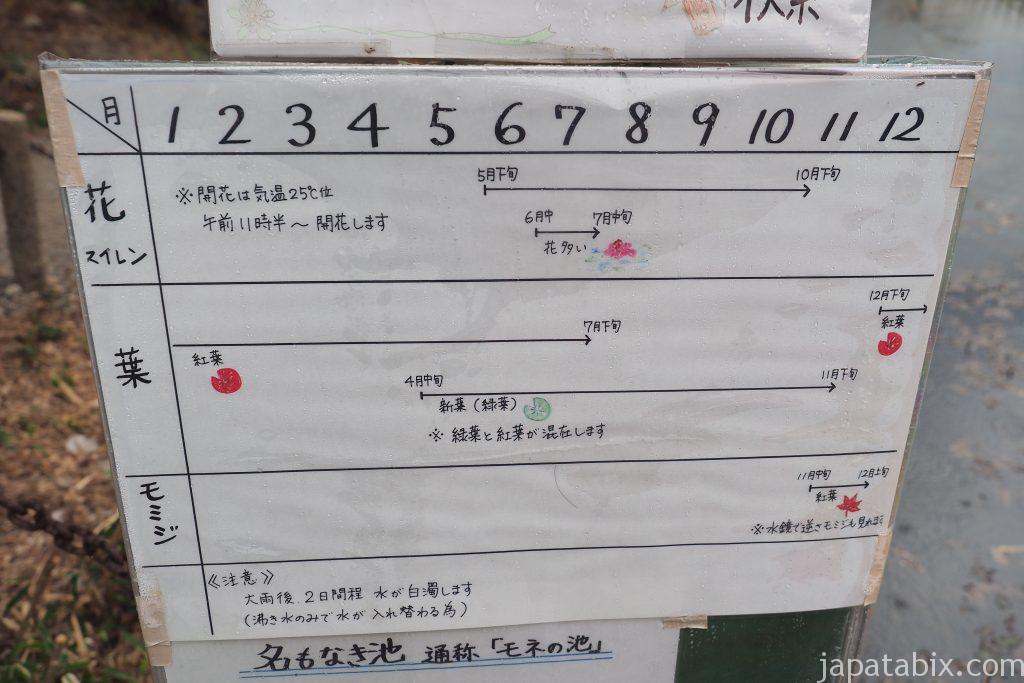 月
1 2 3 4 5 6 7 8 9 10 11 12
花
スイレン
※開花は気温25℃位
午前11時半〜開花します
5月下旬 10月下旬
6月中 7月中旬
花多い
葉
12月下旬
紅葉
7月下旬
紅葉
4月中旬 11月下旬
新葉(緑葉)
※緑葉と紅葉が混在します
モミジ
11月中旬 12月上旬
紅葉
※水鏡で逆さモミジも見れます
《注意》
大雨後、2日間程 水が白濁します
(湧き水のみで水が入れ替わる為)
名もなき池 通称「モネの池」
japatabix.com